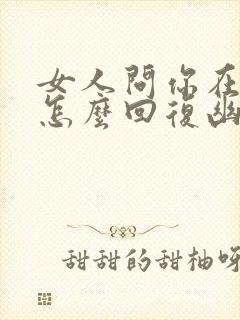 女人問你在
怎麼回復幽
甜甜的甜柚呀